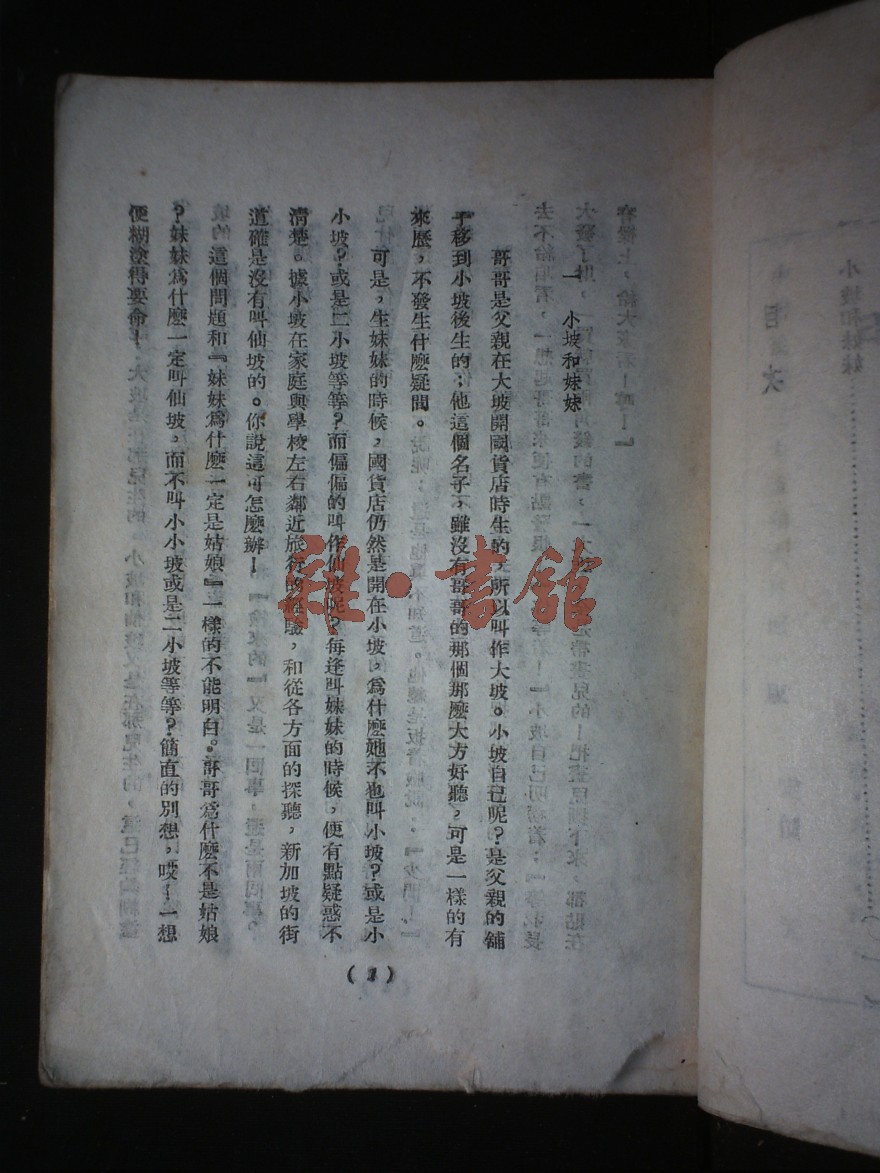 一　小坡和妹妹
哥哥是父親在大坡開國貨店時生的，所以叫作大坡。小坡自己呢？是父親的舖
子移到小坡後生的；他這個名子，雖沒有哥哥的那個那麼大方好聽，可是一樣的有
來歷，不發生什麼疑問。
可是，生妹妹的時候，國貨店仍然是開在小坡，爲什麼她不也叫小坡？或是小
小坡？或是二小坡等等？而偏偏的叫作仙坡呢？每逢叫妹妹的時候，便有點疑惑不
清楚。據小坡在家庭與學校左右鄰近旅行的經驗，和從各方面的探聽，新加坡的街
道確是沒有叫仙坡的。你說這可怎麼辦！
這個問題和『妹妹爲什麼一定是姑娘』一樣的不能明白。哥哥爲什麼不是姑娘
？妹妹爲什麼一定叫仙坡，而不叫小小坡或是二小坡等等？簡直的別想，哎！一想
便糊塗得要命！
(1)
雜·書館
小坡和妹妹